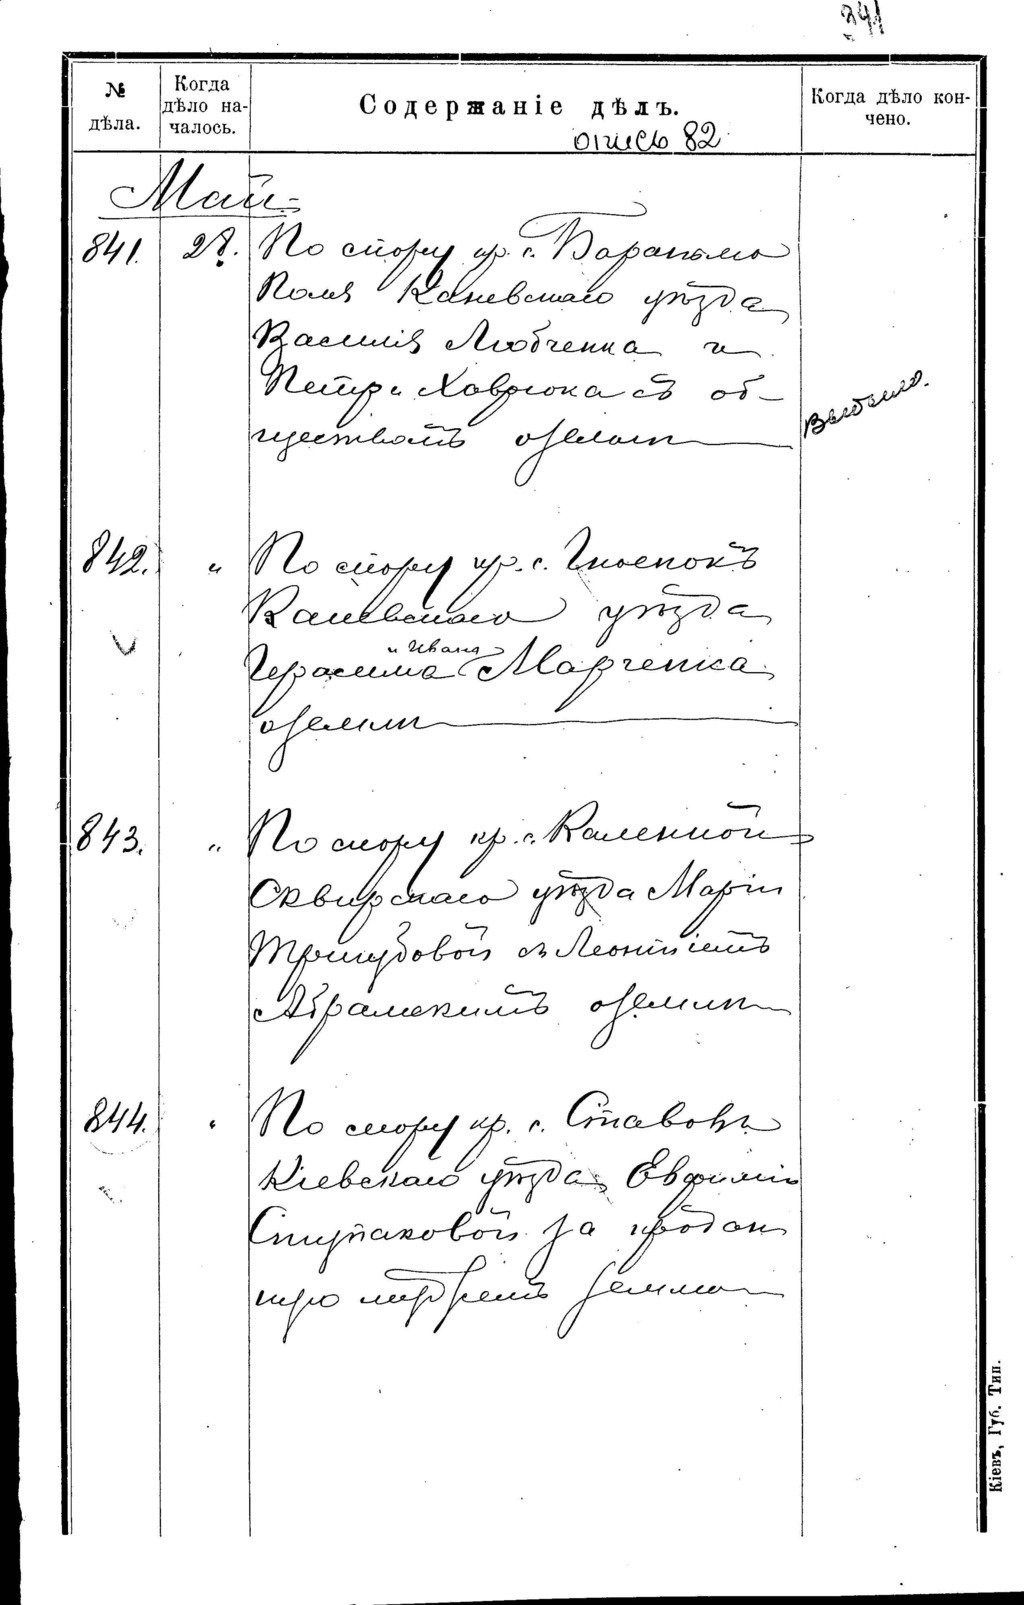 341
№ дѣла.
Когда дѣло началось.
Содержаніе дѣлъ.
Когда дѣло кончено.
опись 82
Май
841. 28. По спору кр. с. Бараньяго
Поля Каневскаго уѣзда
Василія Любченка и
Петра Хаврюка съ об-
ществомъ о земли
Выбыло.
842. " По спору кр. с.
Каневскаго уѣзда
и Ивана
Герасима Марченка
о земли
843. " По спору кр. с. Каленной
Сквирскаго уѣзда Маріи
Тригубовой съ Леонтіемъ
Абрамскимъ о земли
844. " По спору кр. с. Ставовъ
Кіевскаго уѣзда Евфиміи
Ступаковой за
земли
Кіевъ, Губ. Тип.